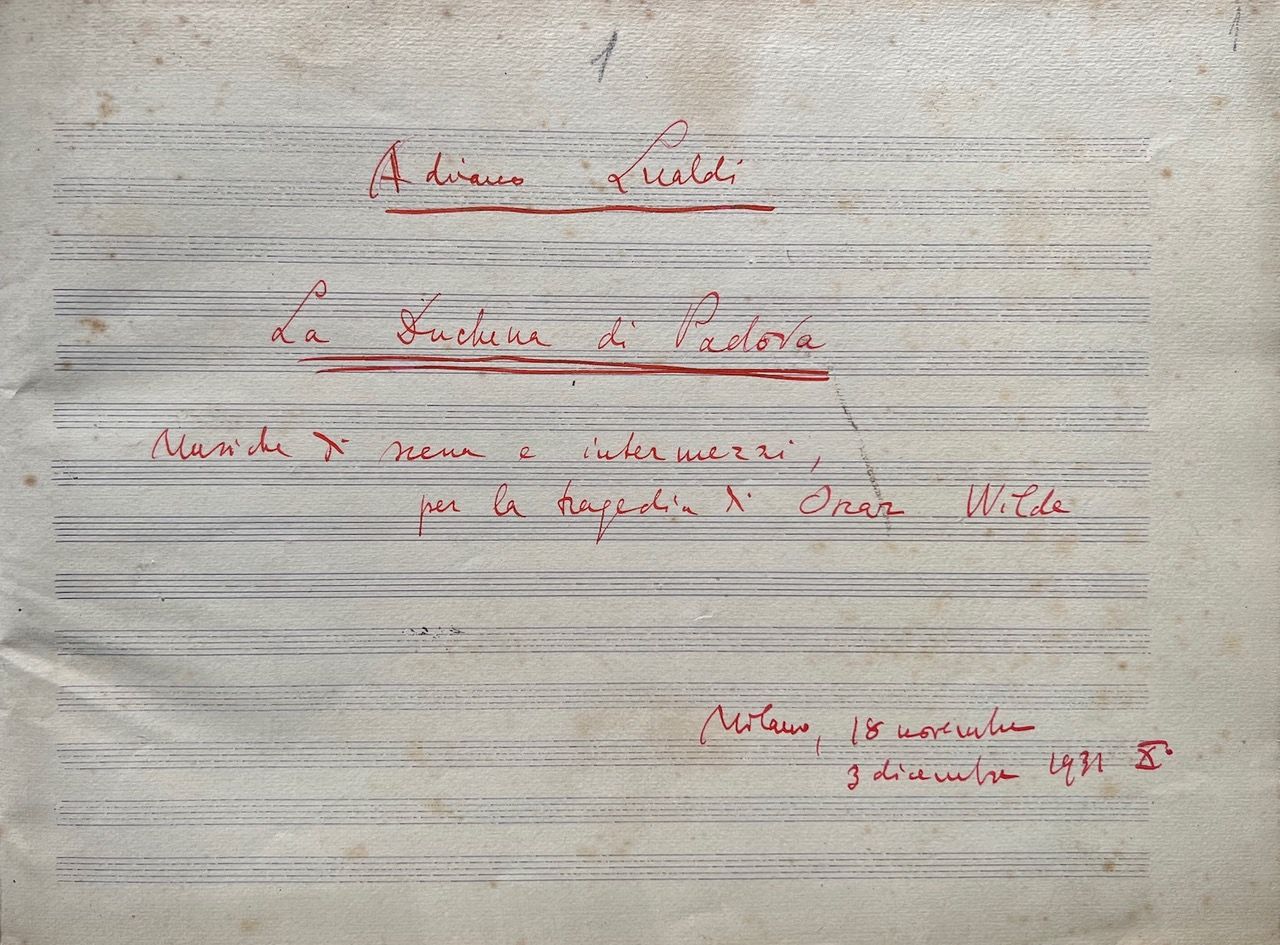 1
1
Adriano Lualdi
La Duchessa di Padova
Musiche di scena e intermezzi,
per la tragedia di Oscar Wilde
Milano, 18 novembre
3 dicembre 1931 X°